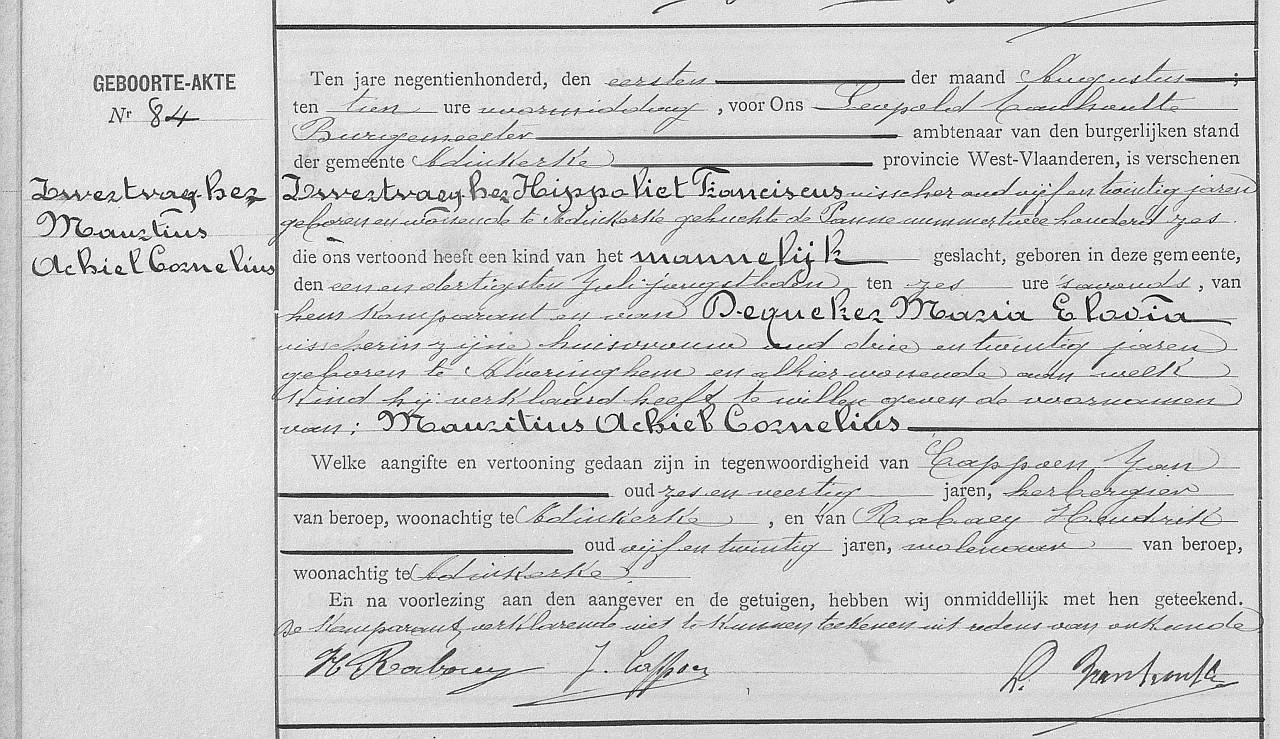 GEBOORTE-AKTE
Nr 84
Zwertvaegher
Mauritius
Achiel Cornelius
Ten jare negentienhonderd, den eersten der maand Augustus ;
ten tien ure voormiddag , voor Ons Leopold
Burgemeester ambtenaar van den burgerlijken stand
der gemeente Adinkerke provincie West-Vlaanderen, is verschenen
Zwertvaegher Hippoliet Franciscus visscher oud vijf en twintig jaren
geboren en wonende te Adinkerke gehuchte de Panne nummer twee honderd zes
die ons vertoond heeft een kind van het mannelijk geslacht, geboren in deze gemeente,
den een en dertigsten Juli jongstleden ten zes ure 's avonds , van
hem Komparant en van Dequeker Maria Elodia
visscherin zijne huisvrouw oud drie en twintig jaren
geboren te Alveringhem en alhier wonende aan welk
Kind hij verklaard heeft te willen geven de voornamen
van ; Mauritius Achiel Cornelius
Welke aangifte en vertooning gedaan zijn in tegenwoordigheid van Cappoen Jan
oud zes en veertig jaren, herbergier
van beroep, woonachtig te Adinkerke , en van Rabaey Hendrik
oud vijf en twintig jaren, molenaar van beroep,
woonachtig te Adinkerke.
En na voorlezing aan den aangever en de getuigen, hebben wij onmiddellijk met hen geteekend.
De Komparant verklarende niet te kunnen teekenen uit redens van onkunde
H Rabaey J. Cappoen L.